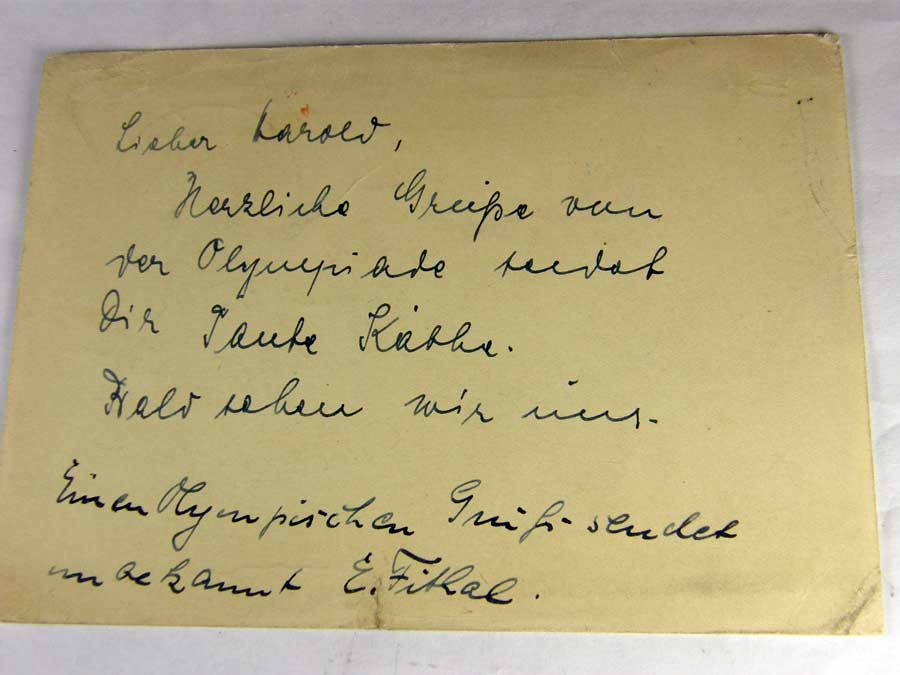 Lieber Harold,
Herzliche Grüße von
der Olympiade sendet
Dir Tante Käthe.
Bald sehen wir uns.
Einen Olympischen Gruß sendet
unbekannt E. Fithal.